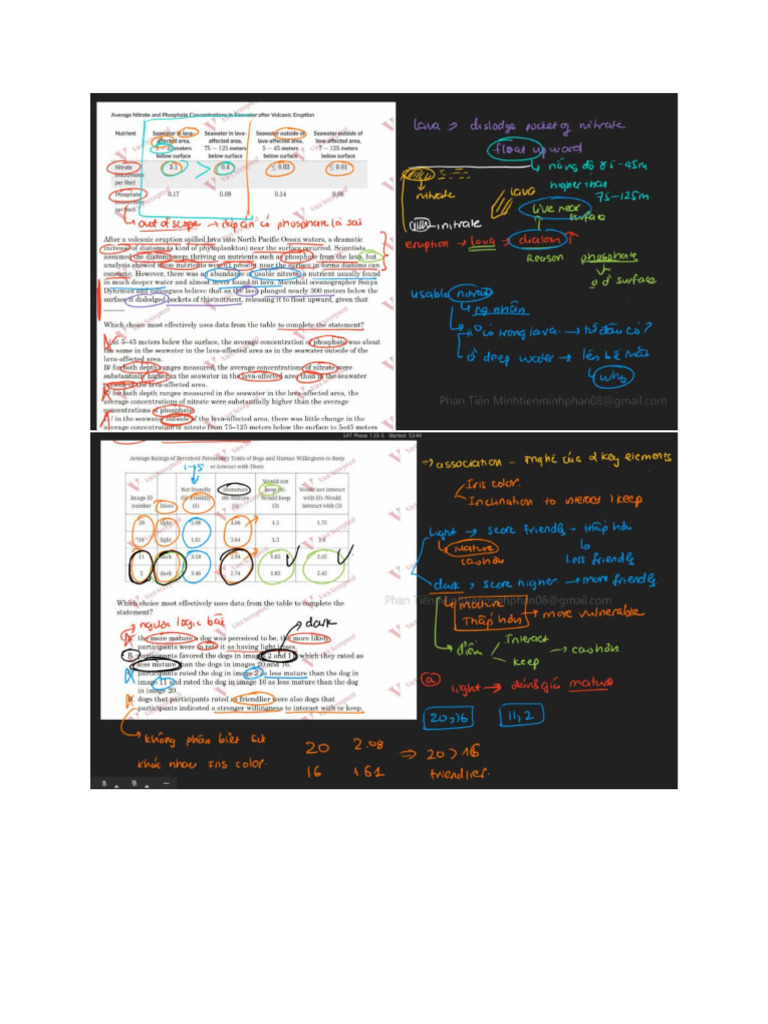 Average Nitrate and Phosphate Concentrations in Seawater after Volcanic Eruption
Nutrient
Seawater in lava-affected area, 5 – 45 meters below surface
Seawater in lava-affected area, 75 – 125 meters below surface
Seawater outside of lava-affected area, 5 – 45 meters below surface
Seawater outside of lava-affected area, 75 – 125 meters below surface
Nitrate per liter) 3.1 > 0.4 ≤ 0.03 ≤ 0.01
Phosphate per liter) 0.17 0.09 0.14 0.06
out of scope → đáp án có phosphate là sai
After a volcanic eruption spilled lava into North Pacific Ocean waters, a dramatic
increase of diatoms (a kind of phytoplankton) near the surface occurred. Scientists
assumed the diatoms were thriving on nutrients such as phosphate from the lava, but
analysis showed these nutrients weren't present near the surface in forms diatoms can
consume. However, there was an abundance of usable nitrate, a nutrient usually found
in much deeper water and almost never found in lava. Microbial oceanographer Sonya
Dyhrman and colleagues believe that as the lava plunged nearly 300 meters below the
surface it dislodged pockets of this nutrient, releasing it to float upward, given that
Which choice most effectively uses data from the table to complete the statement?
at 5–45 meters below the surface, the average concentration of phosphate was about
the same in the seawater in the lava-affected area as in the seawater outside of the
lava-affected area.
for both depth ranges measured, the average concentrations of nitrate were
substantially higher in the seawater in the lava-affected area than in the seawater
outside of the lava-affected area.
for both depth ranges measured in the seawater in the lava-affected area, the
average concentrations of nitrate were substantially higher than the average
concentrations of phosphate.
in the seawater outside of the lava-affected area, there was little change in the
average concentration of nitrate from 75–125 meters below the surface to 5–45 meters
lava → dislodge pocket of nitrate
float upward
nồng độ ở 5-45m
higher than
75-125m
nitrate
lava
live near surface
nitrate
eruption → lava → diatom ↑
Reason phosphate
ko ở surface
usable nitrate
ng nhân
ko có trong lava → từ đâu có?
ở deep water → lên bề mặt
why
Phan Tiến Minhtienminhphan08@gmail.com
SAT Phase 1.22-5 Started: 53:44
Average Ratings of Perceived Personality Traits of Dogs and Human Willingness to Keep
or Interact with Them
1→5
Image ID number
Irises
Not friendly (1)–Friendly (5)
Immature (1)–Mature (5)
Would not keep (1)–Would keep (3)
Would not interact with (1)–Would interact with (3)
20 light 2.08 4.06 1.5 1.75
16 light 1.61 3.64 1.3 1.6
11 dark 3.16 2.94 1.85 2.05
2 dark 3.46 2.74 1.85 2.45
Which choice most effectively uses data from the table to complete the
statement?
ngược logic bài
dark
A. the more mature a dog was perceived to be, the more likely
participants were to rate it as having light irises.
B. participants favored the dogs in images 2 and 11, which they rated as
less mature than the dogs in images 20 and 16.
participants rated the dog in image 2 as less mature than the dog in
image 11 and rated the dog in image 16 as less mature than the dog
in image 20.
D. dogs that participants rated as friendlier were also dogs that
participants indicated a stronger willingness to interact with or keep.
→ association - mqh của 2 key elements
Iris color
Inclination to interact / keep
light → score friendly - thấp hơn
mature
cao hơn
less friendly
dark, score higher → more friendly
Phan Tiến Minhtienminhphan08@gmail.com
mature
thấp hơn → more vulnerable
điểm
Interact
keep
→ cao hơn
light → đánh giá mature
20, 16
11, 2
không phân biệt sự
khác nhau Iris color.
20 2.08 ⇒ 20 > 16
16 1.61 friendlier.